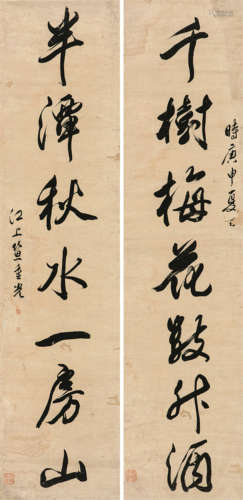 時庚申夏
千樹梅花數升酒
半潭秋水一房山
江上笪重光